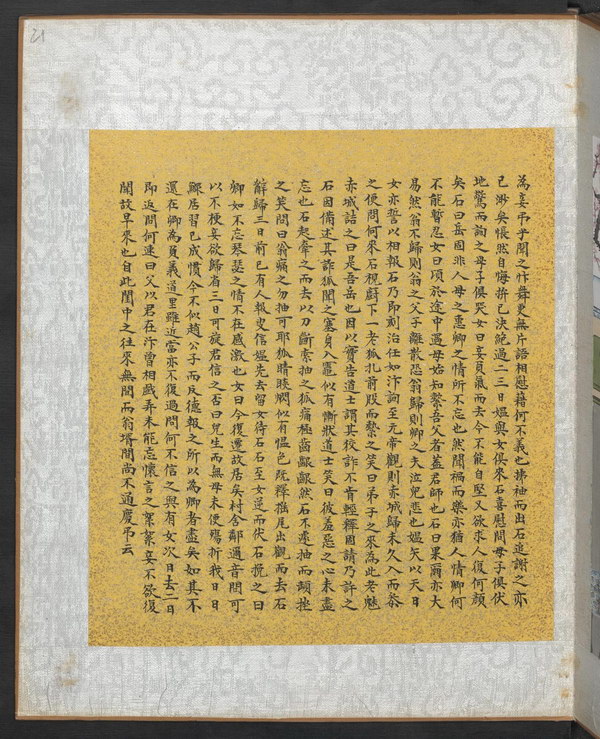 為妾弔乎聞之忭舞更無片語相慰藉何不義也拂袖而出石追謝之亦
已渺矣悵然自悔拚已決絕過二三日媼與女俱來石喜慰問母子俱伏
地驚而詢之母子俱哭女曰妾負氣而去今不能自堅又欲求人復何顏
矣石曰岳固非人母之惠卿之情所不忘也然聞禍而樂亦猶人情卿何
不能暫忍女曰頃於途中遇母始知縶吾父者蓋君師也石曰果爾亦大
易然翁不歸則翁之父子離散恐翁歸則卿之夫泣兒悲也媼矢以天日
女亦誓以相報石乃即刻治任如汴詢至元帝觀則赤城歸未久入而參
之便問何來石視廚下一老狐孔前股而縶之笑曰弟子之來為此老魅
赤城詰之曰是吾岳也因以實告道士謂其狡詐不肯輕釋固請乃許之
石因備述其詐狐聞之塞身入竈似有慚狀道士笑曰彼羞惡之心未盡
忘也石起牽之而去以刀斷索抽之狐痛極齒齦齦然石不遽抽而頓挫
之笑問曰翁痛之勿抽可耶狐睛睒閃似有慍色既釋搖尾出觀而去石
辭歸三日前已有人報叟信媼先去留女待石石至女逆而伏石挽之曰
卿如不忘琴瑟之情不在感激也女曰今復遷故居矣村舍鄰邇音問可
以不梗妾欲歸省三日可旋君信之否曰兒生而無母未便殤折我日日
鰥居習已成慣今不似趙公子而反德報之所以為卿者盡矣如其不
還在卿為負義道里雖近當亦不復過問何不信之與有女次日去二日
即返問何速曰父以君在汴曾相戲弄未能忘懷言之絮絮妾不欲復
聞故早來也自此閨中之往來無間而翁壻間尚不通慶弔云
21